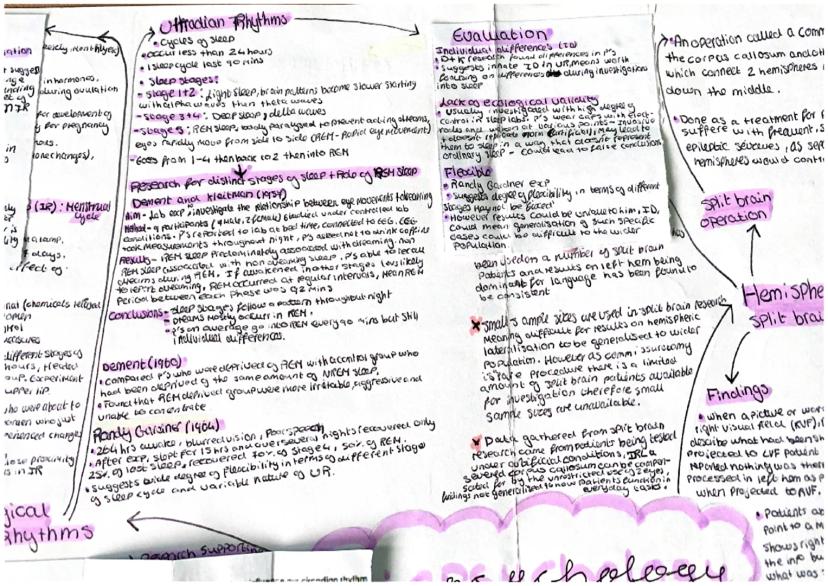 Ultradian Rhythms
• Cycles of sleep
• Occur less than 24 hours
• 1 sleep cycle last 90 mins
• Sleep stages:
- Stage 1+2: Light sleep, brain patterns become slower starting
with alpha waves then theta waves
- Stage 3+4: Deep sleep, delta waves
- Stage 5: REM sleep, body paralysed to prevent acting dreams,
eyes rapidly move from side to side (REM - Rapid eye movement)
- Goes from 1-4 then back to 2 then into REM
Research for distinct stages of sleep + Role of REM sleep
Dement and Kleitman (1957)
Aim - Lab exp, investigate the relationship between eye movements + dreaming
Method - 9 participants (7 male, 2 female) studied under controlled lab
conditions. P's reported to lab at bed time, connected to EEG. EEG
took measurements throughout night, P's asked not to drink caffeine
Results - REM sleep predominantly associated with dreaming, non
REM sleep associated with non dreaming sleep. P's able to recall
dreams during REM. If awakened in other stages less likely
to report dreaming. REM occurred at regular intervals, mean REM
Period between each phase was 92 mins
Conclusions - Sleep stages follow a pattern throughout night
- Dreams mostly occur in REM.
- P's on average go into REM every 90 mins but still
individual differences.
Dement (1960)
• Compared P's who were deprived of REM with a control group who
had been deprived of the same amount of NREM sleep.
• Found that REM deprived group were more irritable, aggressive and
unable to concentrate
Randy Gardner (1964)
• 264 hrs awake, blurred vision, poor speech
• After exp, slept for 15 hrs and over several nights recovered only
25% of lost sleep, recovered 70% of stage 4, 50% of REM.
• Suggests wide degree of flexibility in terms of different stages
of sleep cycle and variable nature of UR.
Evaluation
Individual differences (ID)
• D+K research found differences in P's
• Suggests innate ID in UR, means worth
focusing on differences during investigations
into sleep
Lack of ecological validity
• Usually investigated with high degree of
control in sleep labs. P's wear caps with elect-
rodes and woken at various points - invasive
+ doesn't replicate norm (artificial), may lead to
them to sleep in a way that doesn't represent
ordinary sleep - could lead to false conclusions
Flexible
• Randy Gardner exp
• Suggests degree of flexibility in terms of different
stages may not be fixed
• However results could be unique to him, ID,
could mean generalisation of such specific
cases could be difficult to the wider
population
been used on a number of split brain
patients and results on left hem being
dominant for language has been found to
be consistent
x Small sample sizes are used in split brain research
meaning difficult for results on hemispheric
lateralisation to be generalised to wider
population. However as commissurotomy
is rare procedure there is a limited
amount of split brain patients available
for investigation therefore small
sample sizes are unavailable.
x Data gathered from split brain
research came from patients being tested
under artificial conditions. IRL a
severed corpus callosum can be compen-
sated for by the unrestricted use of 2 eyes,
findings not generalised to how patients function in
everyday tasks.
• An operation called a comm
the corpus callosum and oth
which connect 2 hemispheres
down the middle.
• Done as a treatment for p
suffere with frequent, s
epileptic seizures, as sep
hemispheres would contr
Split brain
operation
Hemisphe
split brai
Findings
• when a picture or wor
right visual field (RVF), p
describe what had been sh
projected to LVF patient
reported nothing was ther
processed in left hem as p
when projected to RVF.
• Patients ab
point to a m
shows right
the info bu
what was s
(IR): Menstrual
Cycle
gical
Rhythms
• Research suppor
circadian rhythm
Psychology